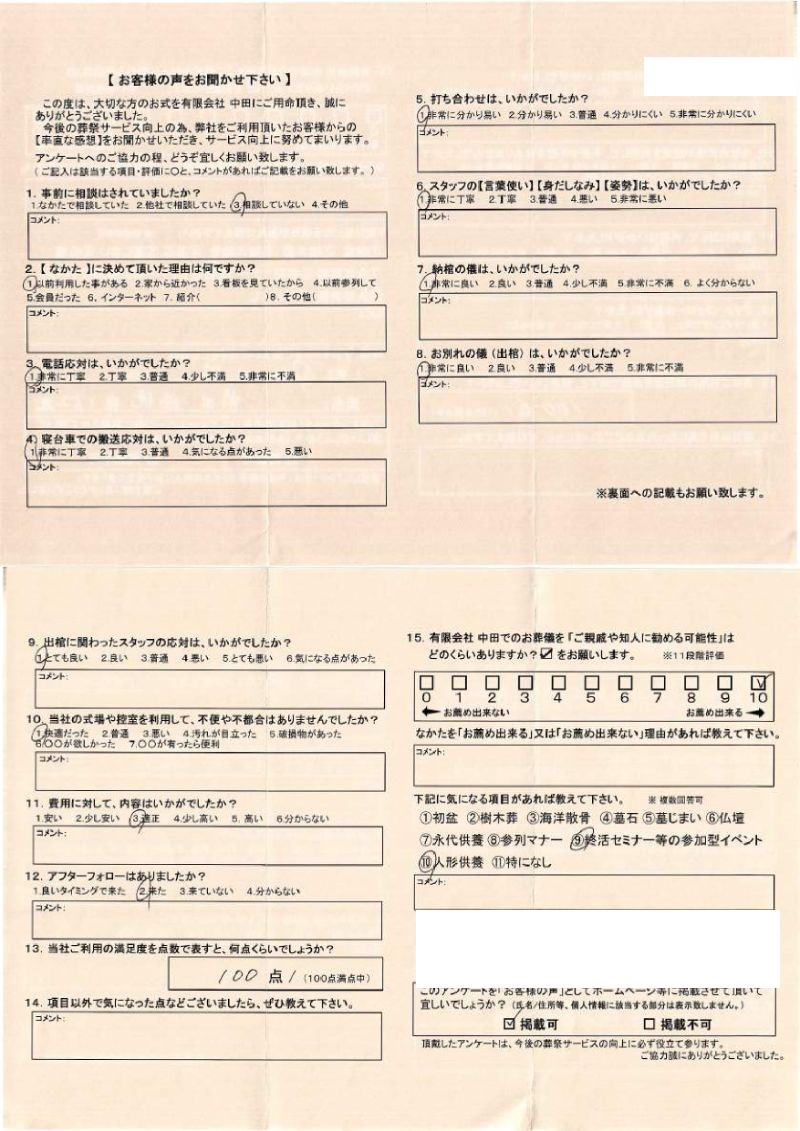 【 お客様の声をお聞かせ下さい 】
この度は、大切な方のお式を有限会社 中田にご用命頂き、誠に
ありがとうございました。
今後の葬祭サービス向上の為、弊社をご利用頂いたお客様からの
【率直な感想】をお聞かせいただき、サービス向上に努めてまいります。
アンケートへのご協力の程、どうぞ宜しくお願い致します。
（ご記入は該当する項目・評価に○と、コメントがあればご記載をお願い致します。）
1. 事前に相談はされていましたか？
1.なかたで相談していた 2.他社で相談していた 3.相談していない 4.その他
コメント:
2.【 なかた 】に決めて頂いた理由は何ですか？
1.以前利用した事がある 2.家から近かった 3.看板を見ていたから 4.以前参列して
5.会員だった 6、インターネット 7. 紹介( )8. その他( )
コメント:
3. 電話応対は、いかがでしたか？
1.非常に丁寧 2.丁寧 3.普通 4.少し不満 5.非常に不満
コメント:
4. 寝台車での搬送応対は、いかがでしたか？
1.非常に丁寧 2.丁寧 3.普通 4.気になる点があった 5.悪い
コメント:
5. 打ち合わせは、いかがでしたか？
1.非常に分かり易い 2.分かり易い 3.普通 4.分かりにくい 5.非常に分かりにくい
コメント:
6. スタッフの【言葉使い】【身だしなみ】【姿勢】は、いかがでしたか？
1.非常に丁寧 2.丁寧 3.普通 4.悪い 5.非常に悪い
コメント:
7. 納棺の儀は、いかがでしたか？
1.非常に良い 2.良い 3.普通 4.少し不満 5.非常に不満 6. よく分からない
コメント:
8. お別れの儀（出棺）は、いかがでしたか？
1.非常に良い 2.良い 3.普通 4.少し不満 5.非常に不満
コメント:
※裏面への記載もお願い致します。
9. 出棺に関わったスタッフの応対は、いかがでしたか？
1.とても良い 2.良い 3.普通 4.悪い 5.とても悪い 6.気になる点があった
コメント:
10. 当社の式場や控室を利用して、不便や不都合はありませんでしたか？
1.快適だった 2.普通 3.悪い 4.汚れが目立った 5.破損物があった
6.○○が欲しかった 7.○○が有ったら便利
コメント:
11. 費用に対して、内容はいかがでしたか？
1.安い 2.少し安い 3.適正 4.少し高い 5. 高い 6.分からない
コメント:
12. アフターフォローはありましたか？
1.良いタイミングで来た 2.来た 3.来ていない 4.分からない
コメント:
13. 当社ご利用の満足度を点数で表すと、何点くらいでしょうか？
100 点 (100点満点中)
14. 項目以外で気になった点などございましたら、ぜひ教えて下さい。
コメント:
15. 有限会社 中田でのお葬儀を「ご親戚や知人に勧める可能性」は
どのくらいありますか？☑ をお願いします。 ※11段階評価
0 1 2 3 4 5 6 7 8 9 10
お薦め出来ない お薦め出来る
なかたを「お薦め出来る」又は「お薦め出来ない」理由があれば教えて下さい。
コメント:
下記に気になる項目があれば教えて下さい。 ※ 複数回答可
①初盆 ②樹木葬 ③海洋散骨 ④墓石 ⑤墓じまい ⑥仏壇
⑦永代供養 ⑧参列マナー ⑨終活セミナー等の参加型イベント
⑩人形供養 ⑪特になし
コメント:
このアンケートを「お客様の声」としてホームページ等に掲載させて頂いて
宜しいでしょうか？（氏名/住所等、個人情報に該当する部分は表示致しません。）
☑ 掲載可 □ 掲載不可
頂戴したアンケートは、今後の葬祭サービスの向上に必ず役立て参ります。
ご協力誠にありがとうございました。